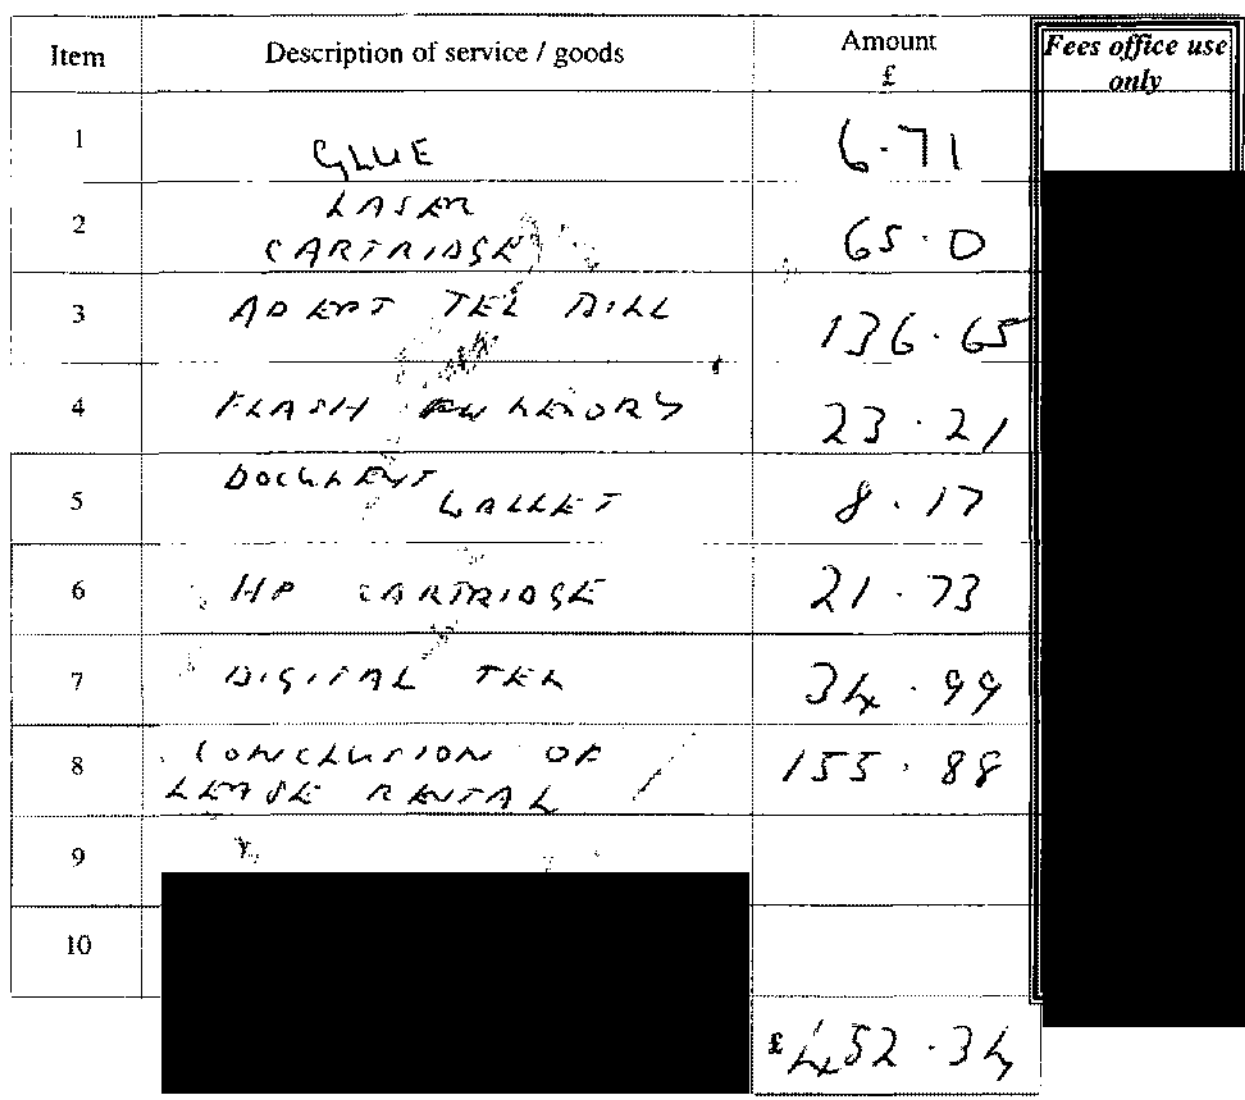 Item Description of service / goods Amount £ Fees office use only
1 GLUE 6.71
2 LASER CARTRIDGE 65.0
3 ADEPT TEL BILL 136.65
4 FLASH MEMORY 23.21
5 DOCUMENT WALLET 8.17
6 HP CARTRIDGE 21.73
7 DIGITAL TEL 34.99
8 CONCLUSION OF LEASE RENTAL 155.88
9
10
£452.34